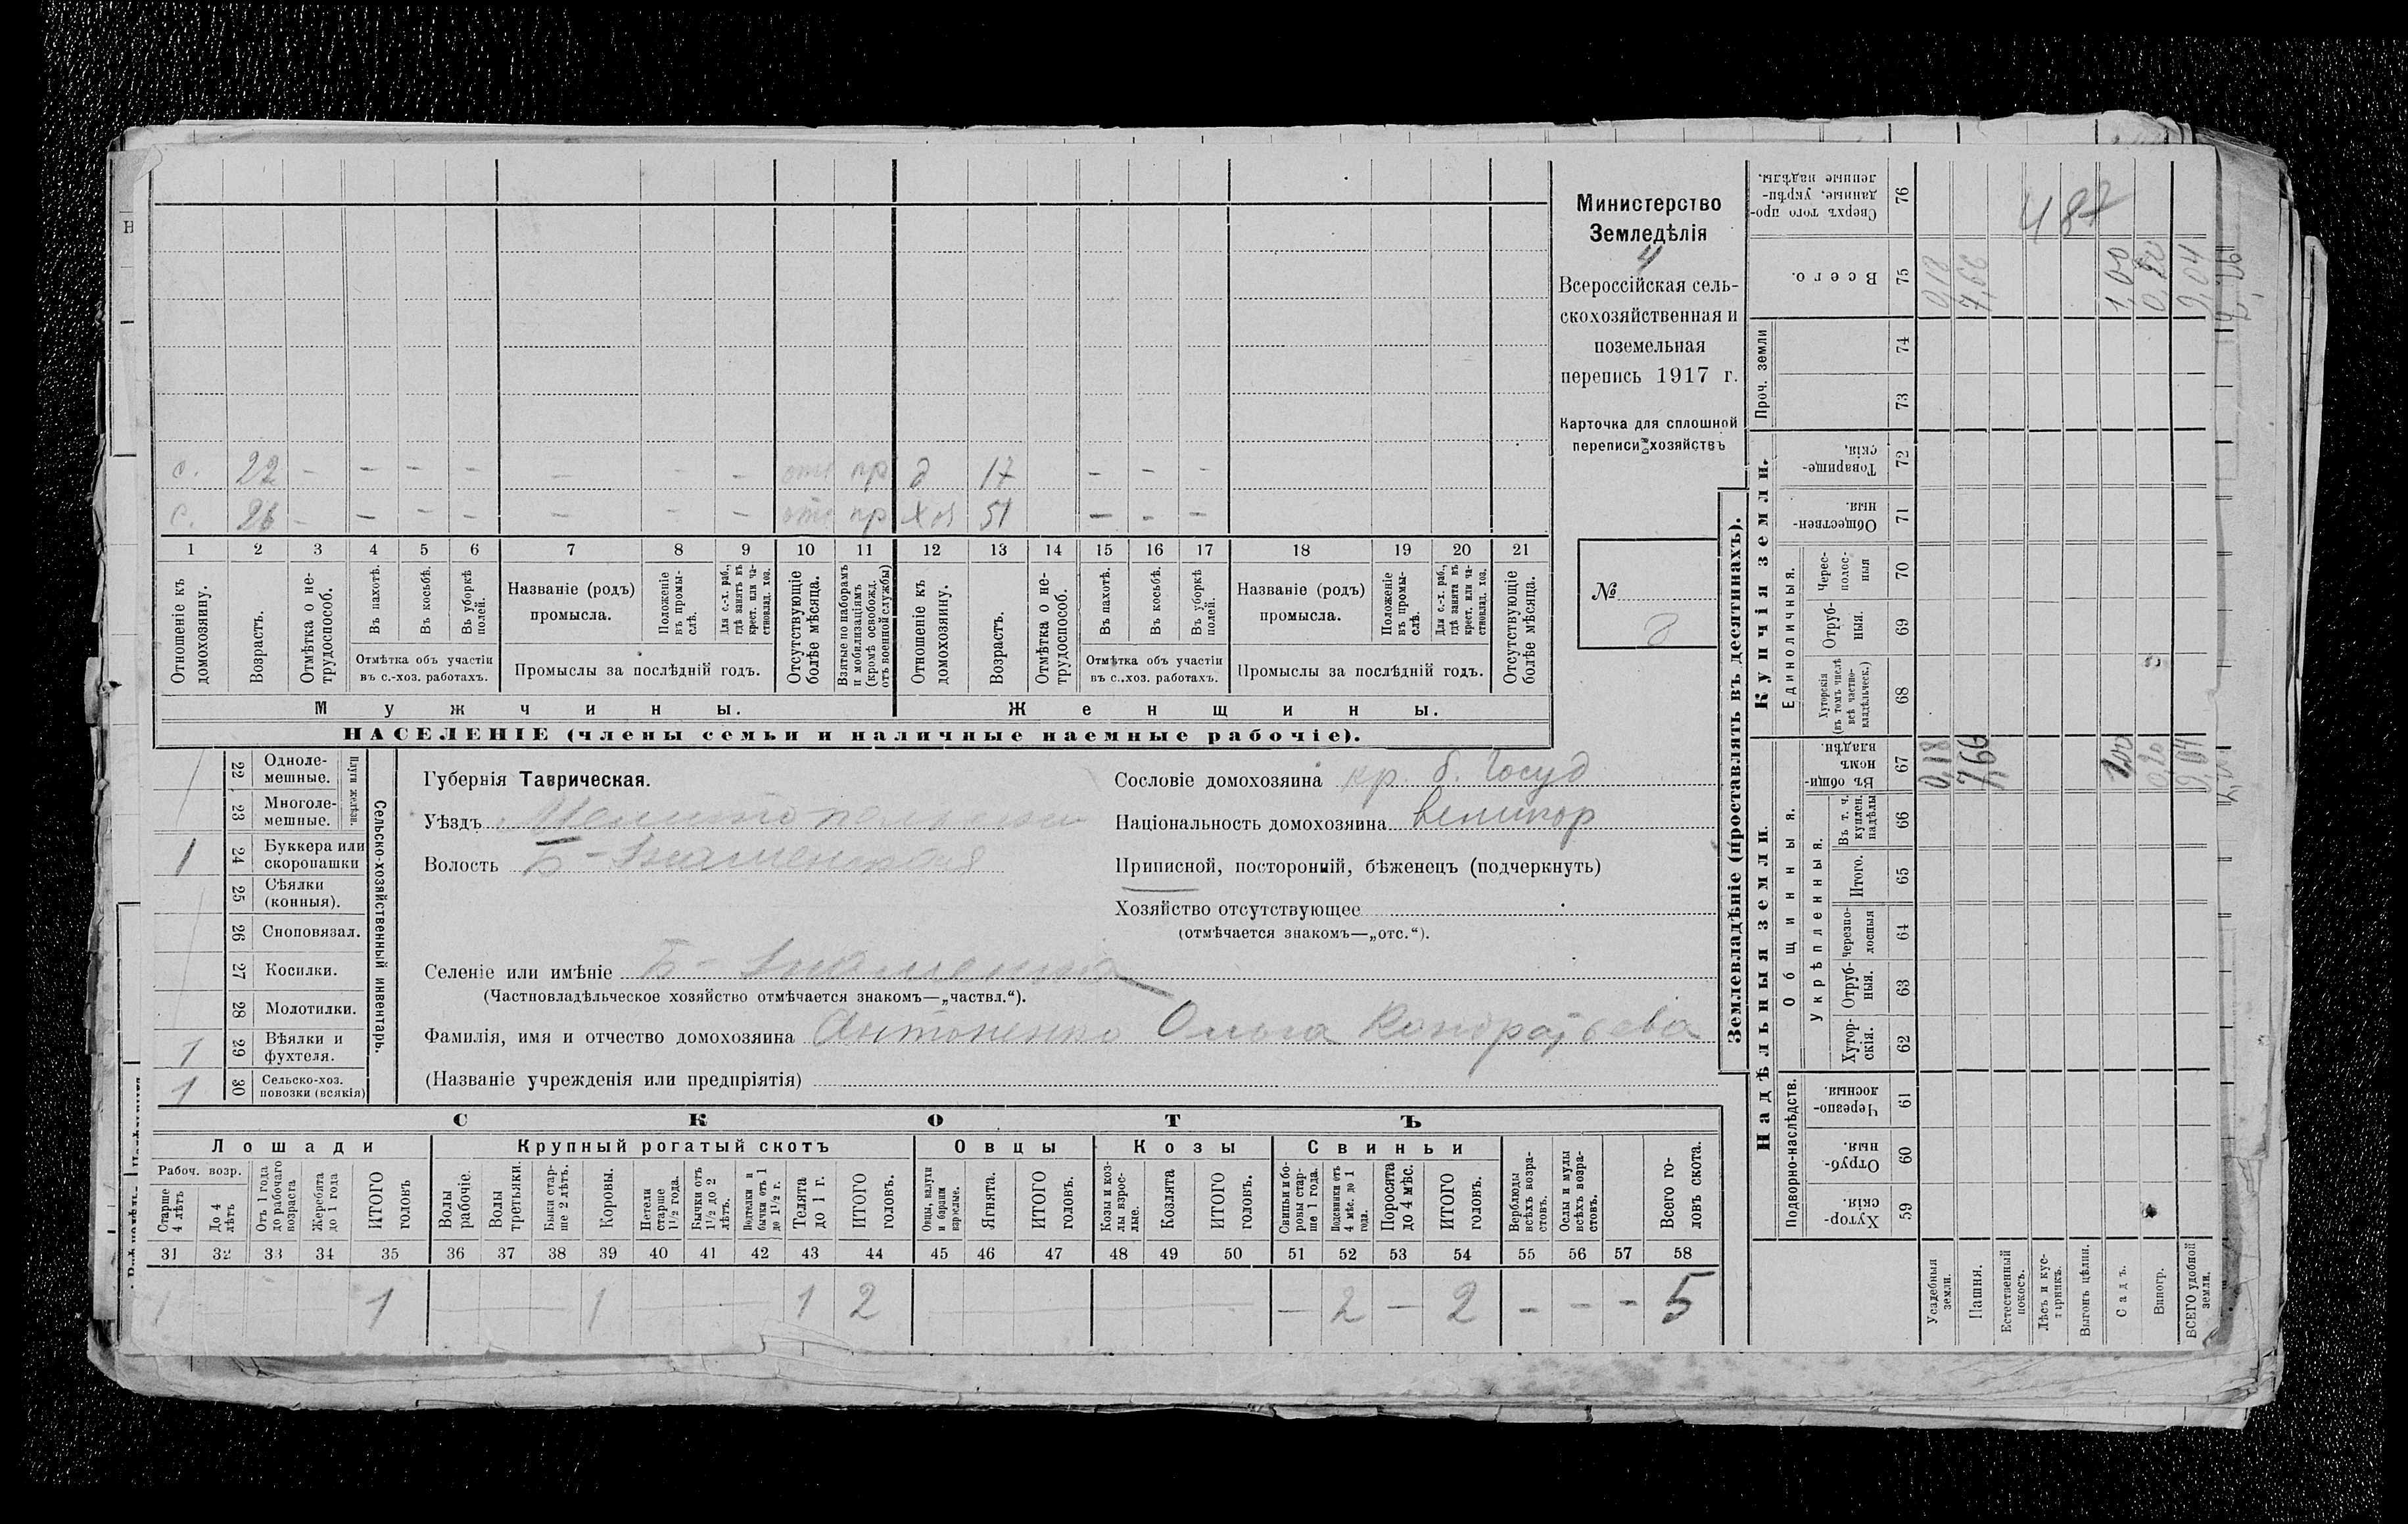 с. 22 - - - - - - - отс пр д 17 - - -
с. 26 - - - - - - - отс пр хоз 51 - - -
1 2 3 4 5 6 7 8 9 10 11 12 13 14 15 16 17 18 19 20 21
Отношеніе къ домохозяину.
Возрастъ.
Отмѣтка о нетрудоспособ.
Въ пахотѣ.
Въ косьбѣ.
Въ уборкѣ полей.
Отмѣтка объ участіи
въ с.-хоз. работахъ.
Названіе (родъ)
промысла.
Положеніе въ промыслѣ.
Для с.-х. раб., гдѣ занятъ въ крест. или частновлад. хоз.
Промыслы за послѣдній годъ.
Отсутствующіе болѣе мѣсяца.
Взятые по наборамъ и мобилизаціямъ (кромѣ освобожд. отъ военной службы)
Отношеніе къ домохозяину.
Возрастъ.
Отмѣтка о нетрудоспособ.
Въ пахотѣ.
Въ косьбѣ.
Въ уборкѣ полей.
Отмѣтка объ участіи
въ с..хоз. работахъ.
Названіе (родъ)
промысла.
Положеніе въ промыслѣ.
Для с.-х. раб., гдѣ занята въ крест. или частновлад. хоз.
Промыслы за послѣдній годъ.
Отсутствующіе болѣе мѣсяца.
Мужчины. Женщины.
НАСЕЛЕНІЕ (члены семьи и наличные наемные рабочіе).
Министерство
Земледѣлія
4
Всероссійская сель-
скохозяйственная и
поземельная
перепись 1917 г.
Карточка для сплошной
переписи хозяйствъ
№
8
22 Одноле-
мешные.
23 Многоле-
мешные.
Плуги желѣзн.
1 24 Буккера или
скоропашки
25 Сѣялки
(конныя).
26 Сноповязал.
27 Косилки.
28 Молотилки.
1 29 Вѣялки и
фухтеля.
1 30 Сельско-хоз.
повозки (всякія)
Сельско-хозяйственный инвентарь.
Губернія Таврическая.
Уѣздъ Мелитопольскій
Волость Б-Знаменская
Селеніе или имѣніе Б-Знаменка
(Частновладѣльческое хозяйство отмѣчается знакомъ—„частвл.“).
Фамилія, имя и отчество домохозяина Антоненко Ольга Кондратьева
(Названіе учрежденія или предпріятія)
Сословіе домохозяина кр. б. Госуд
Національность домохозяина великор
Приписной, посторонній, бѣженецъ (подчеркнуть)
Хозяйство отсутствующее
(отмѣчается знакомъ—„отс.“).
СКОТЪ
Лошади Крупный рогатый скотъ Овцы Козы Свиньи
Рабоч. возр.
Старше 4 лѣтъ
До 4 лѣтъ
Отъ 1 года до рабочаго возраста
Жеребята до 1 года
ИТОГО головъ
Волы рабочіе.
Волы третьяки.
Быки старше 2 лѣтъ.
Коровы.
Нетели старше 1 1/2 года.
Бычки отъ 1 1/2 до 2 лѣтъ.
Подтелки и бычки отъ 1 до 1 1/2 г.
Телята до 1 г.
ИТОГО головъ.
Овцы, валухи и бараны взрослые.
Ягнята.
ИТОГО головъ.
Козы и козлы взрослые.
Козлята
ИТОГО головъ.
Свиньи и боровы старше 1 года.
Подсвинки отъ 4 мѣс. до 1 года.
Поросята до 4 мѣс.
ИТОГО головъ.
Верблюды всѣхъ возрастовъ.
Ослы и мулы всѣхъ возрастовъ.
Всего головъ скота.
31 32 33 34 35 36 37 38 39 40 41 42 43 44 45 46 47 48 49 50 51 52 53 54 55 56 57 58
1 1 1 1 2 - 2 - 2 - - - 5
Землевладѣніе (проставлять въ десятинахъ).
Надѣльныя земли.
Купчія земли.
Проч. земли
Подворно-наслѣдств.
Общинныя.
Укрѣпленныя.
Единоличныя.
Хуторскія. 59
Отрубныя. 60
Черезполосныя. 61
Хуторскія. 62
Отрубныя. 63
Черезполосныя 64
Итого. 65
Въ т. ч. куплен. надѣлы 66
Въ общиномъ владѣн. 67
Хуторскія (въ томъ числѣ всѣ частновладѣльческ.) 68
Отрубныя. 69
Чересполосныя 70
Общественныя. 71
Товарищескія. 72
73
74
Всего. 75
Сверхъ того проданные, укрѣпленные надѣлы. 76
487
Усадебныя земли. 0,18 0,18
Пашня. 7,66 7,66
Естественный покосъ.
Лѣсъ и кустарникъ.
Выгонъ цѣлин.
Садъ. 1,00 1,00
Виногр. 0,20 0,20
ВСЕГО удобной земли. 9,04 9,04